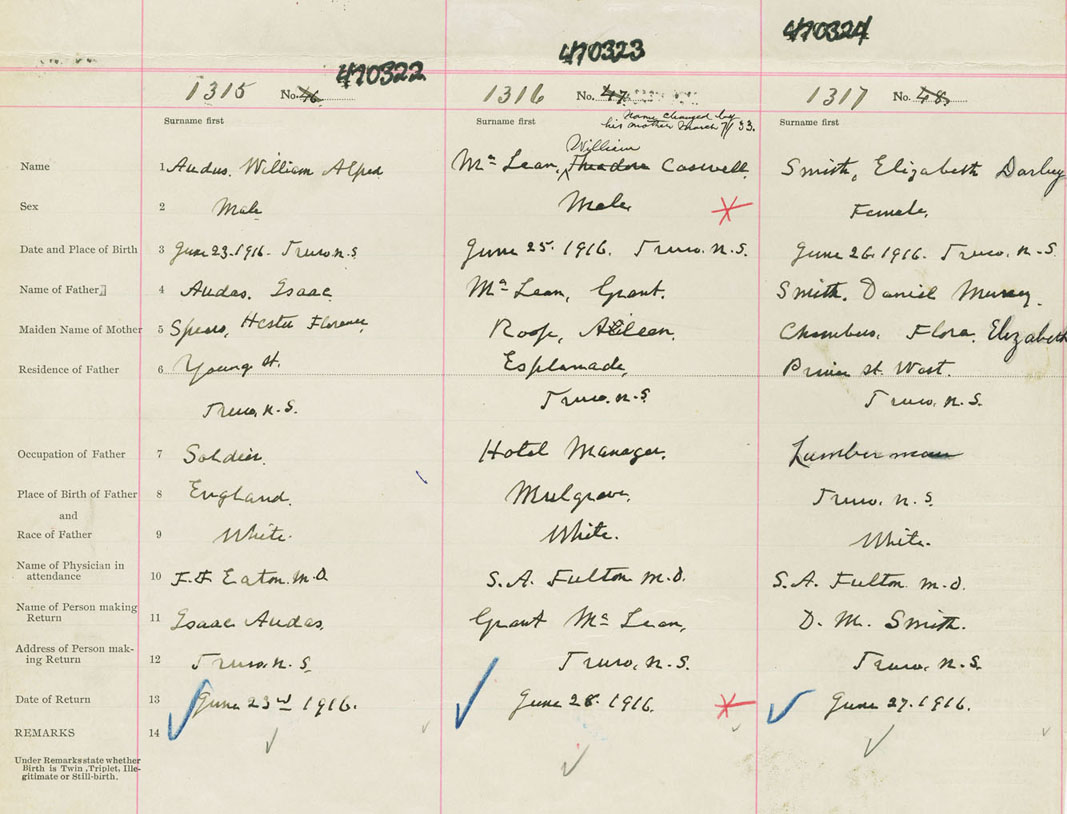 470322 470323 470324
1315 No. 46 1316 No. 47 1317 No. 48
Name changed by
his mother March 7/33.
Surname first Surname first Surname first
William
Name 1 Audas, William Alfred Mc Lean, Theodore Caswell. Smith, Elizabeth Darley
Sex 2 Male Male Female,
Date and Place of Birth 3 June 23. 1916. Truro. N.S June 25. 1916. Truro, N.S. June 26. 1916. Truro, N.S
Name of Father 4 Audas, Isaac Mc Lean, Grant. Smith, Daniel Murray.
Maiden Name of Mother 5 Spears, Hester Florence Roop, Aileen. Chambers, Flora. Elizabeth
Residence of Father 6 Young St. Esplanade, Prince St. West.
Truro, N.S. Truro, N.S Truro, N.S.
Occupation of Father 7 Soldier. Hotel Manager. Lumberman
Place of Birth of Father 8 England. Mulgrave. Truro, N.S.
and
Race of Father 9 White. White. White.
Name of Physician in
attendance 10 F.F Eaton. M.D. S.A. Fulton M.D. S.A. Fulton M.D.
Name of Person making
Return 11 Isaac Audas, Grant Mc Lean, D. M. Smith.
Address of Person mak-
ing Return 12 Truro, N.S. Truro, N.S. Truro, N.S.
Date of Return 13 June 23rd 1916. June 28. 1916. June 27. 1916.
REMARKS 14
Under Remarks state whether
Birth is Twin, Triplet, Ille-
gitimate or Still-birth.